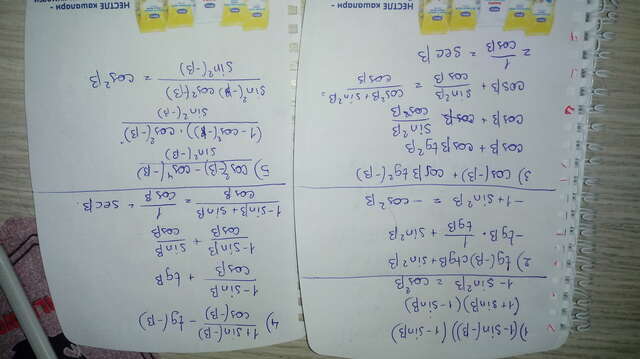 1) (1-sin(-β)) (1-sinβ)
(1+sinβ)(1-sinβ)
1-sin²β = cos²β
2) tg(-β)ctgβ+sin²β
-tgβ · 1/tgβ + sin²β
-1+sin²β = -cos²β
3) cos(-β) + cosβ tg²(-β)
cosβ + cosβ tg²β
cosβ + cosβ sin²β/cos²β
cosβ + sin²β/cosβ = cos²β+sin²β/cosβ =
= 1/cosβ = secβ
4) 1+sin(-β)/cos(-β) - tg(-β)
1-sinβ/cosβ + tgβ
1-sinβ/cosβ + sinβ/cosβ
1-sinβ+sinβ/cosβ = 1/cosβ = secβ.
5) cos²(-β)-cos⁴(-β)/sin²(-β)
(1-cos²(-β))·cos²(-β)/sin²(-β)
sin²(-β)cos²(-β)/sin²(-β) = cos²β
НЕСТЛЕ кашалари -
НЕСТЛЕ кашалари -